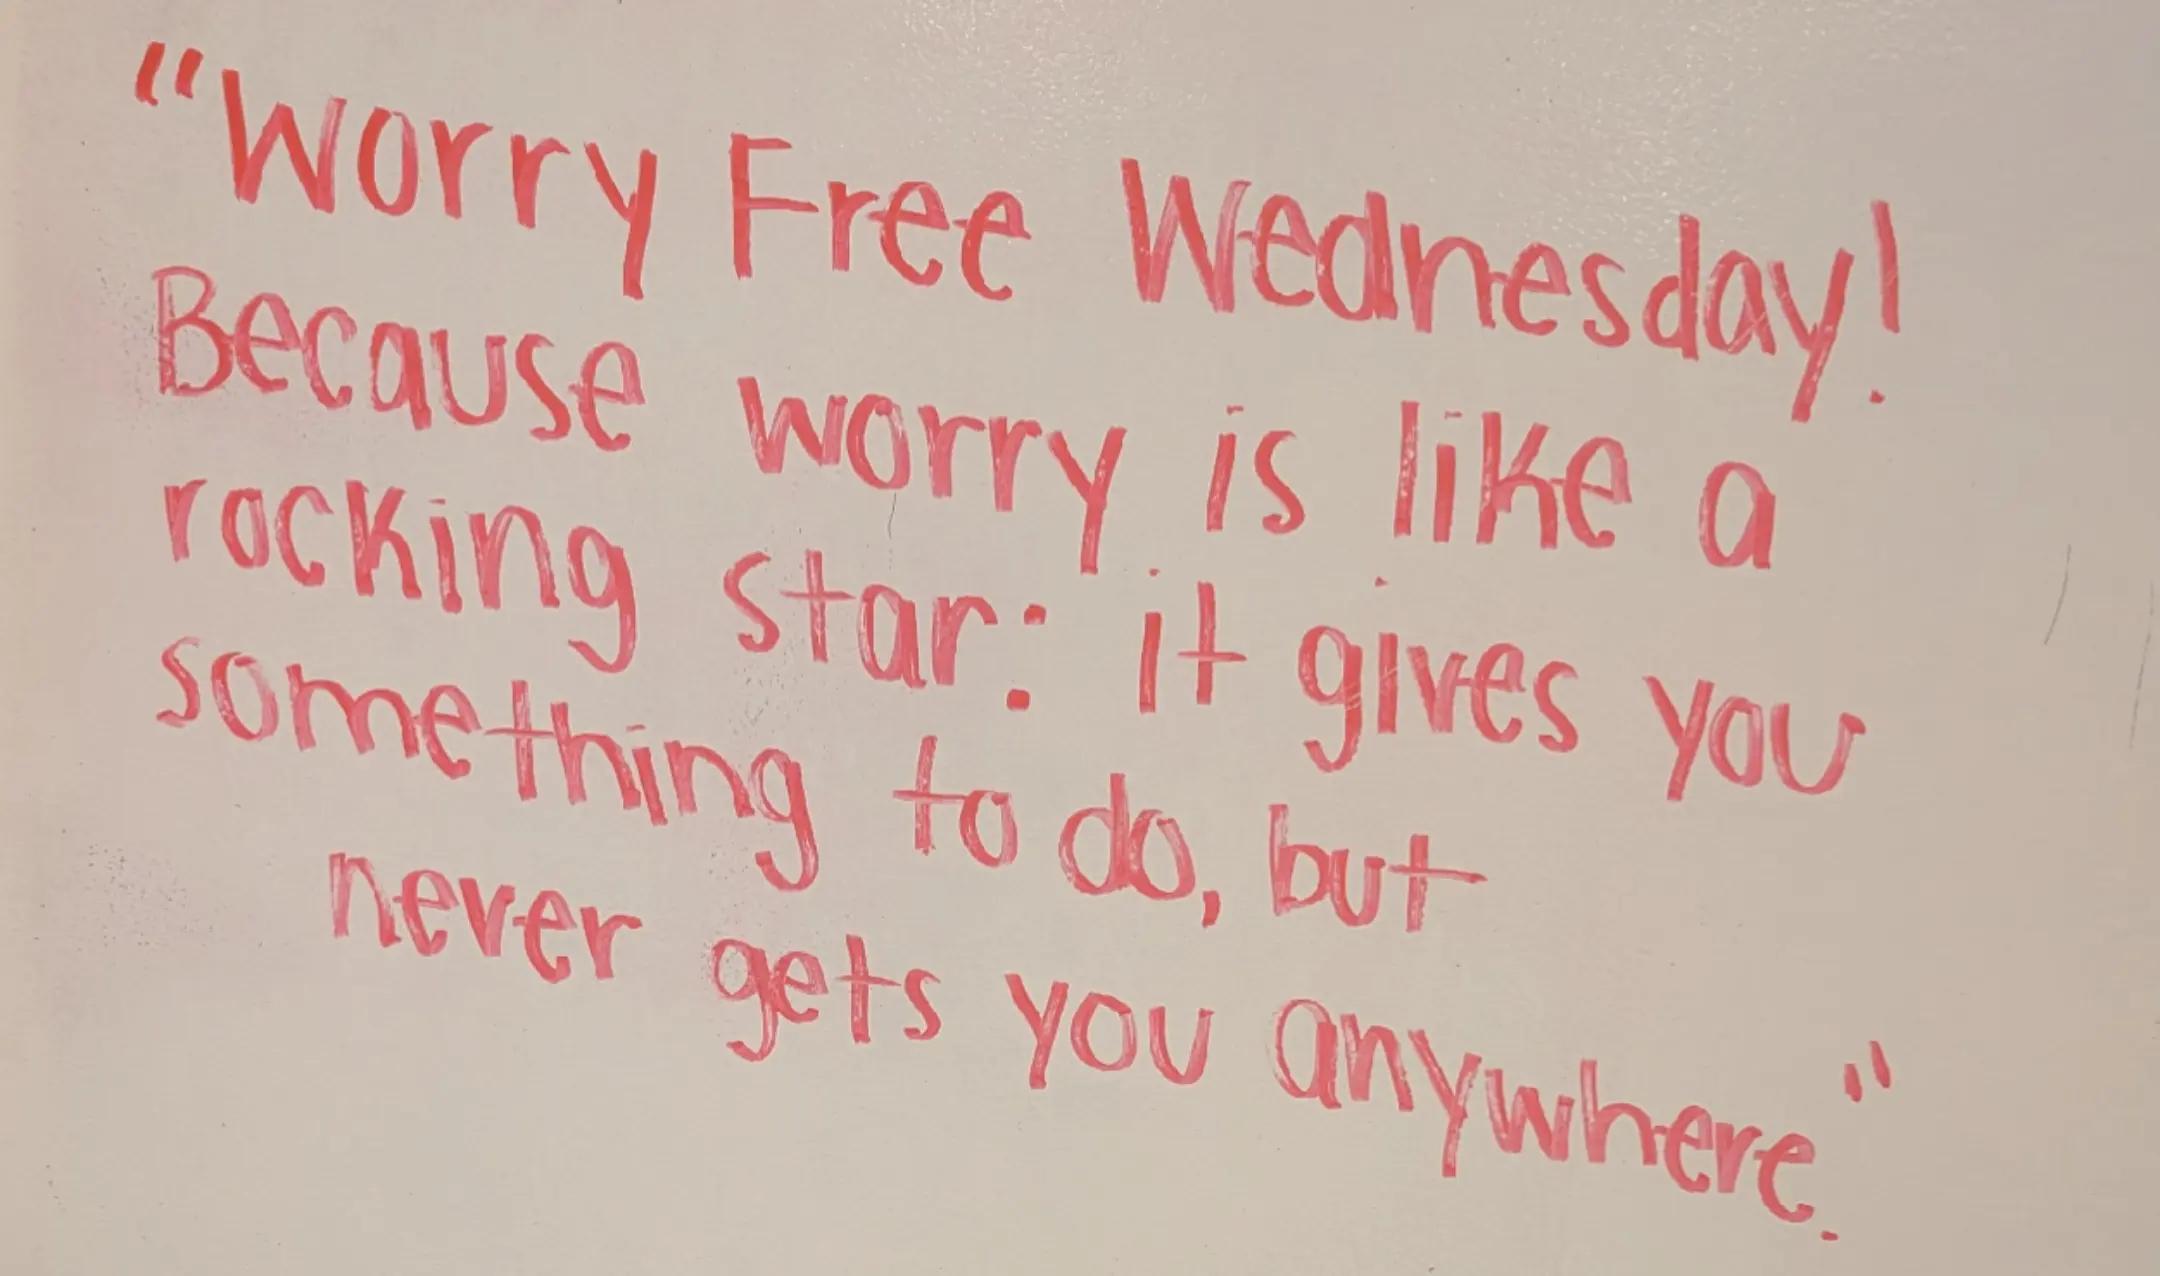 "Worry Free Wednesday!
Because worry is like a
rocking star: it gives you
something to do, but
never gets you anywhere."